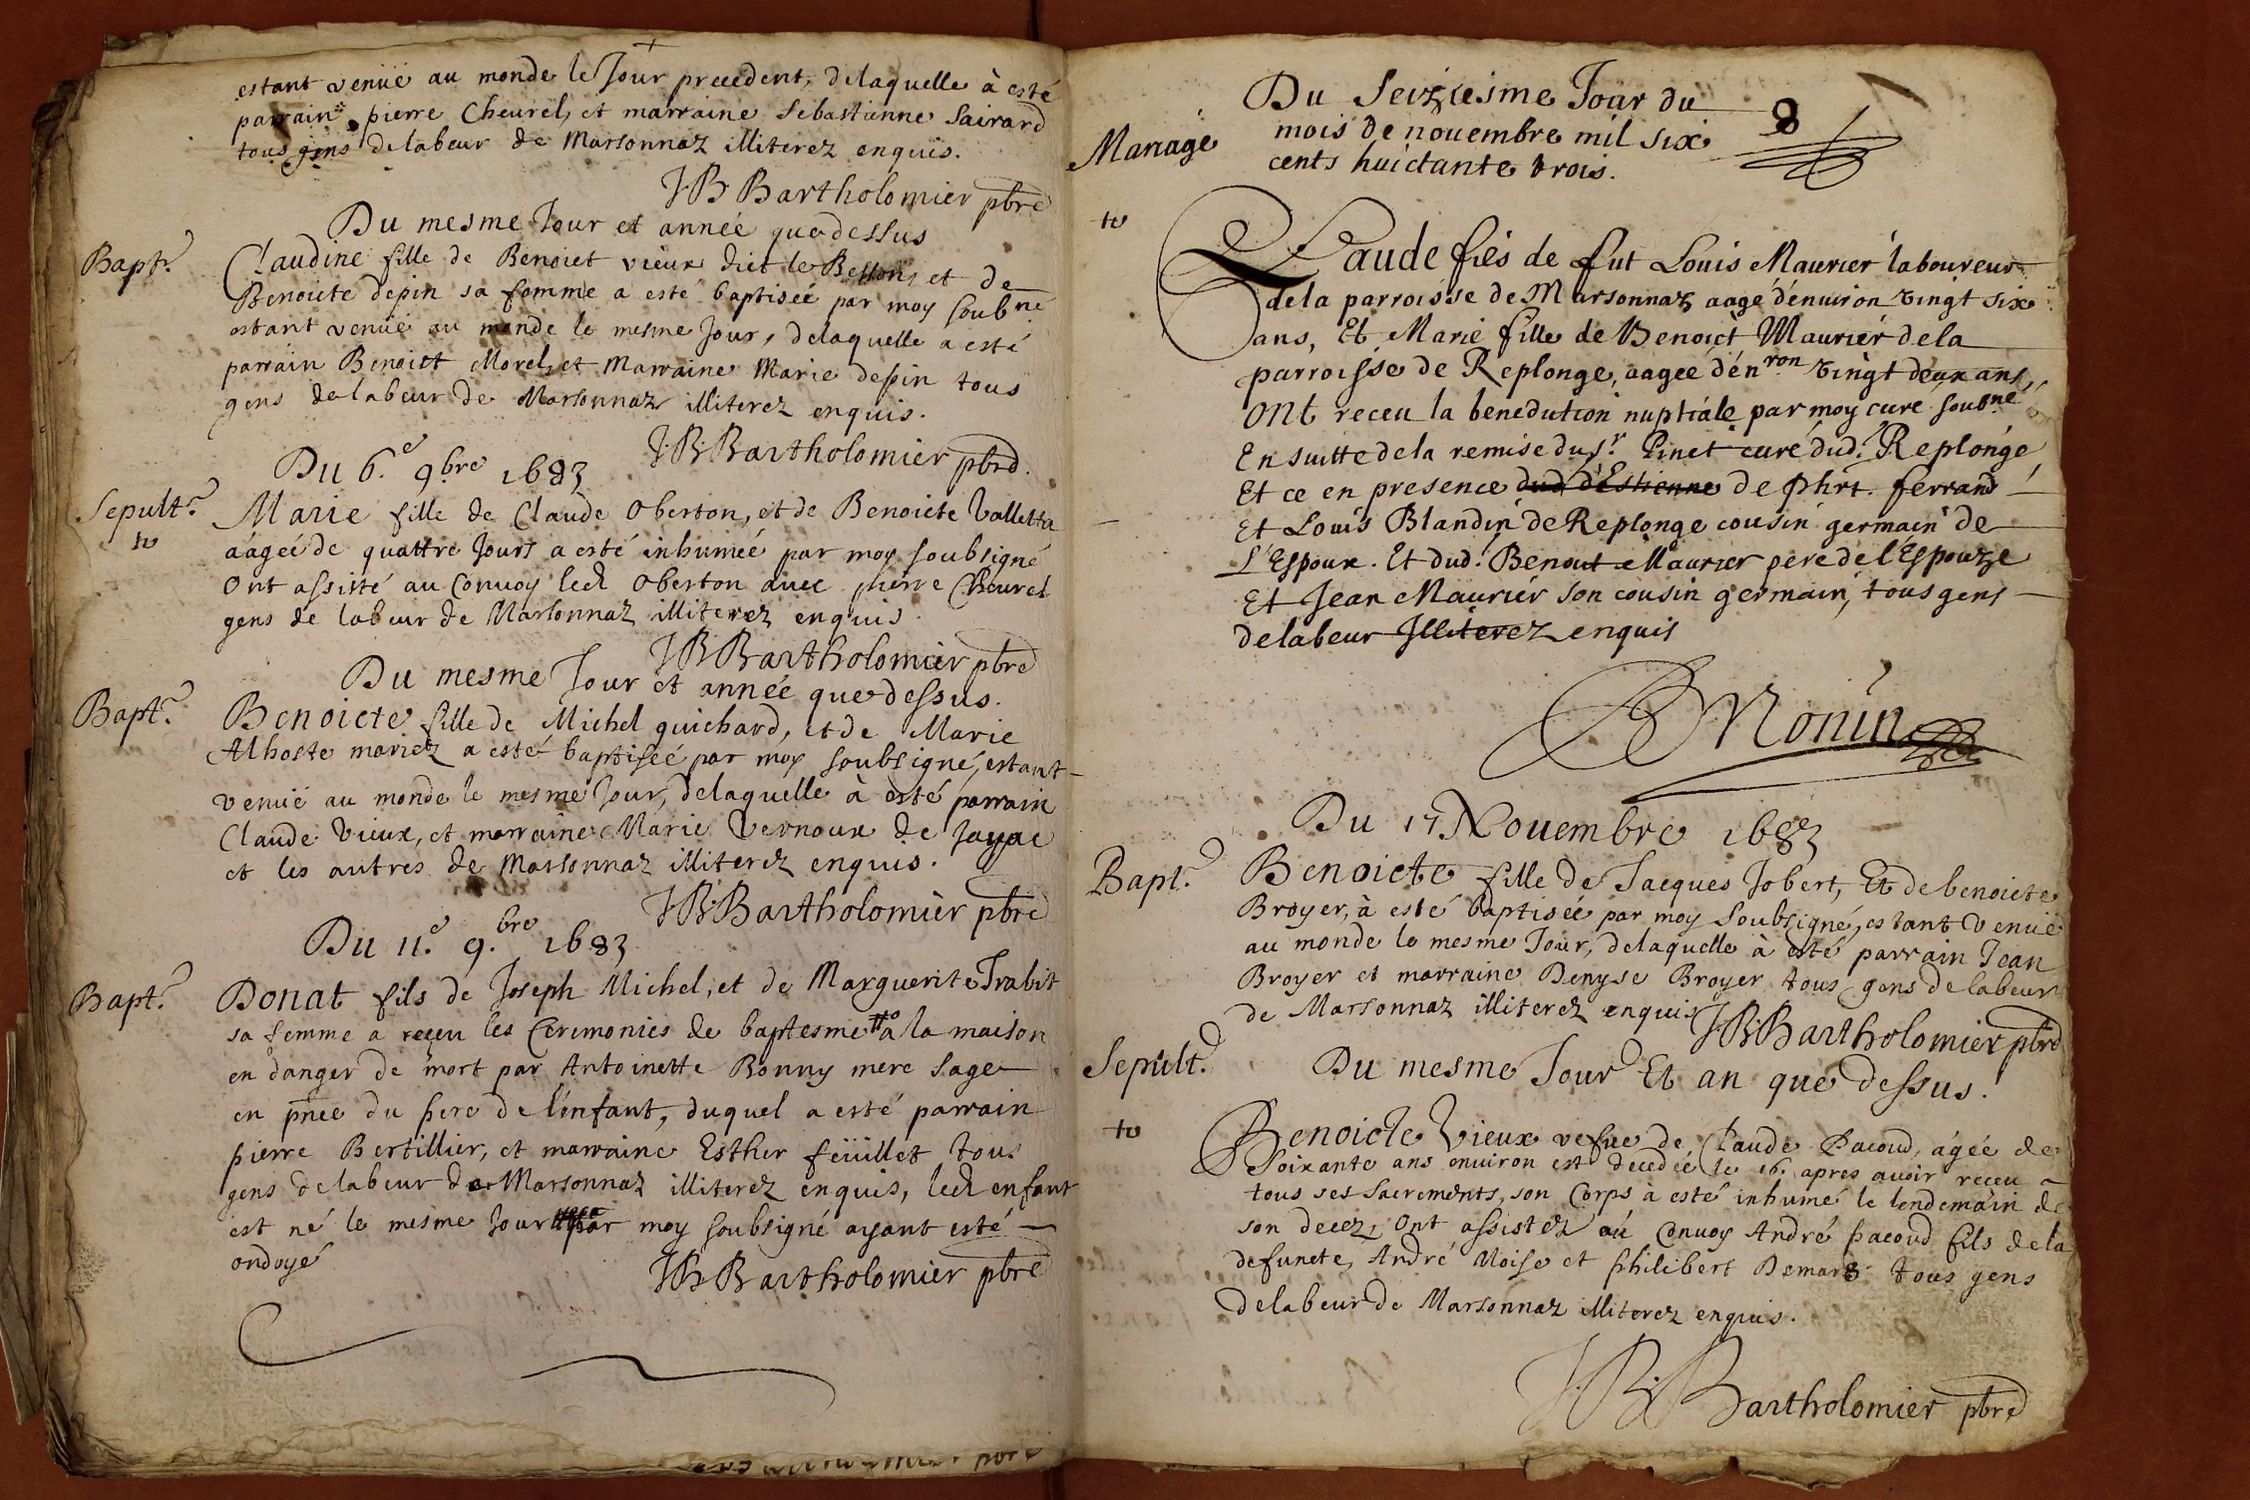 estant venüe au monde le Jour precedent, delaquelle à esté
parrain pierre Cheurel, et marraine Sebastienne Sairard
tous gens delabeur de Marsonnaz illiterez enquis.
JB Bartholomier pbre
Du mesme Jour et année que dessus
Bapt.e
Claudine fille de Benoict vieux dict le Bessons et de
Benoicte depin sa femme a esté baptiseé par moy soub.né
estant venüe au monde le mesme Jour, delaquelle a esté
parrain Benoist Morel, et Marraine Marie depin tous
gens delabeur de Marsonnaz illiterez enquis.
J.B. Bartholomier pbre.
Du 6.e 9.bre 1683
Sepult.e
to
Marie fille de Claude Oberton, et de Benoicte Valletta
aágeé de quattre Jours a esté inhumeé par moy soubsigné
Ont assisté au Convoy led. Oberton avec pierre Cheurel
gens de labeur de Marsonnaz illiterez enquis.
JB Bartholomier pbre
Du mesme Jour et année que dessus.
Bapt.e
Benoicte fille de Michel guichard, et de Marie
Alhoste mariez a esté baptiseé par moy soubsigné, estant
venüe au monde le mesme Jour, delaquelle à esté parrain
Claude Vieux, et marraine Marie Vernoux de Jayac
et les autres de Marsonnaz illiterez enquis.
JB. Bartholomier pbre
Du 11.e 9.bre 1683
Bapt.e
Donat fils de Joseph Michel, et de Marguerite Trabit
sa femme a reçeu les Ceremonies de baptesme à la maison
en danger de mort par Antoinette Bonny mere Sage
en pñce du pere de l'énfant, duquel a esté parrain
pierre Bertillier, et marraine Esther feüillet tous
gens delabeur de Marsonnaz illiterez enquis, led. enfant
est né le mesme Jour par moy soubsigné ayant esté
ondoyé
JB Bartholomier pbre
8
Du Seiziesme Jour du
Mariage
mois de nouembre mil six
cents huictante trois.
to
Claude fils de fut Louis Maurier laboureur
dela parroisse de Marsonnaz aagé d'énuiron vingt six
ans, Et Marie fille de Benoict Maurier dela
parroisse de Replonge, aageé d'én.ron vingt deux ans,
ONt receu la benediction nuptiale par moy curé soub.né
En suitte dela remise du s.r Pinet curé dud. Replonge
Et ce en presence dud d'Estienne de phrt. ferrand
Et Louis Blandin de Replonge cousin germain de
L'Espoux. Et dud. Benoict Maurier pere de l'Espouze
Et Jean Maurier son cousin germain, tous gens
delabeur Illiterez enquis
Monin
Du 17 Nouembre 1683
Bapt.e
Benoicte fille de Jacques Jobert, Et de benoicte
Broyer, à esté baptiseé par moy Soubsigné, estant venüe
au monde le mesme Jour, delaquelle à esté parrain Jean
Broyer et marraine Denyse Broyer tous gens delabeur
de Marsonnaz illiterez enquis
JB. Bartholomier pbre
Sepult.e
Du mesme Jour Et an que dessus.
to
Benoicte Vieux vefue de Claude Pacoud, ágeé de
Soixante ans enuiron est decedeé le 16. apres avoir receu
tous ses Sacrements, son Corps à esté inhumé le lendemain de
son decez, Ont assistez au Convoy André pacoud fils dela
defuncte, André Moise et philibert Demars tous gens
delabeur de Marsonnaz illiterez enquis.
J.B. Bartholomier pbre